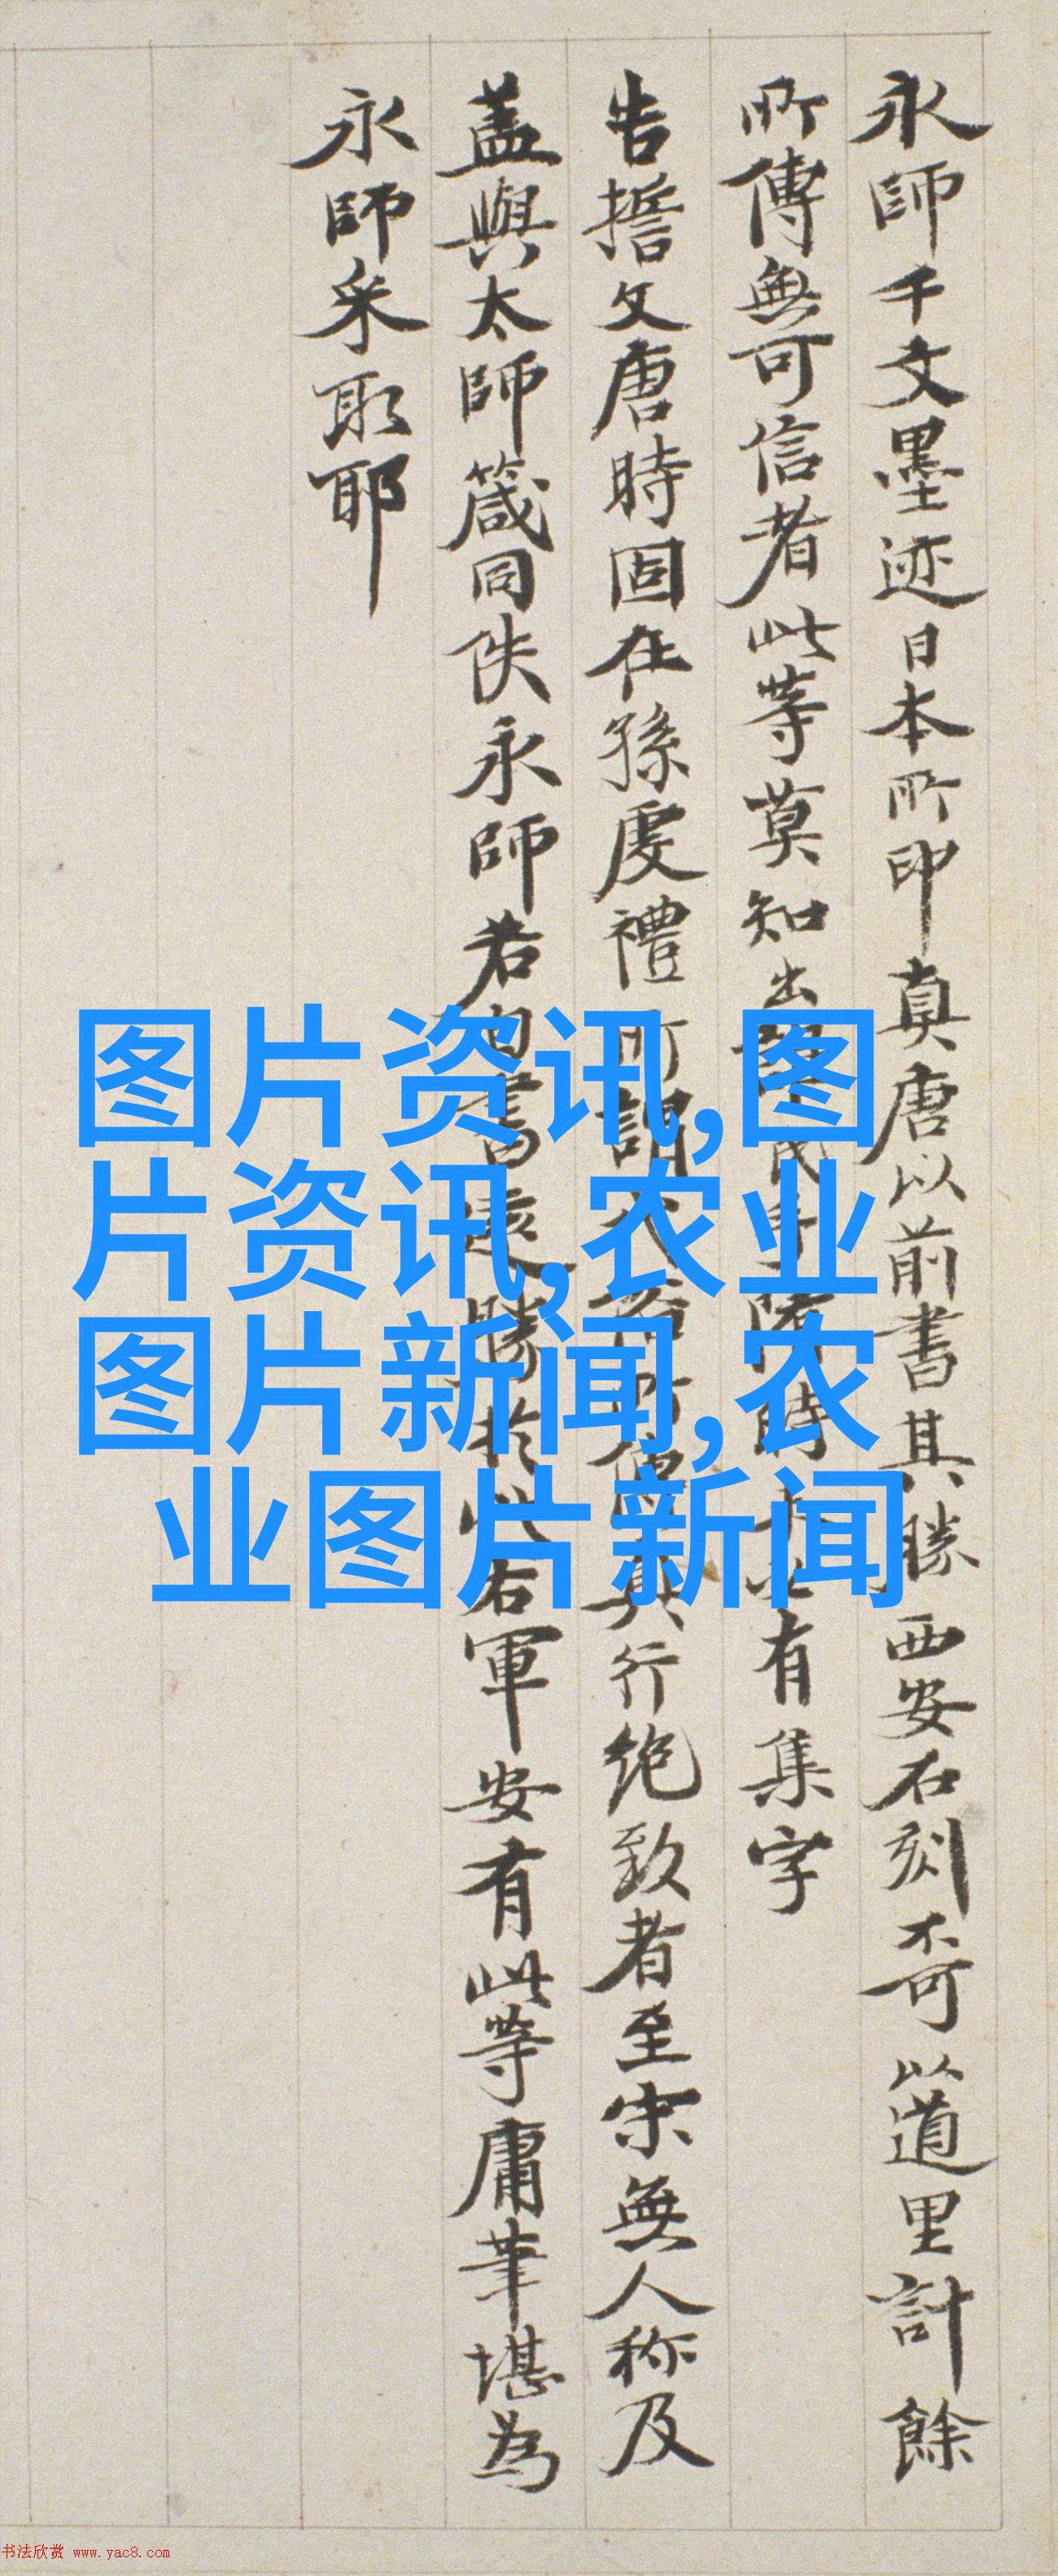 永師千文墨迹日本所印真唐以前書其勝西安石刻不可以道里計餘
所傳無可信者此等莫知出
告擔文唐時固在孫虔禮所謂
真行絶致者至宋無人称及
蓋與太師箴同佚永師若
右軍安有此等庸筆堪為
永師采取耶
時
有集字
图片资讯,图
片资讯,农业
图片新闻,农
业图片新闻
书法欣赏 www.yac8.com